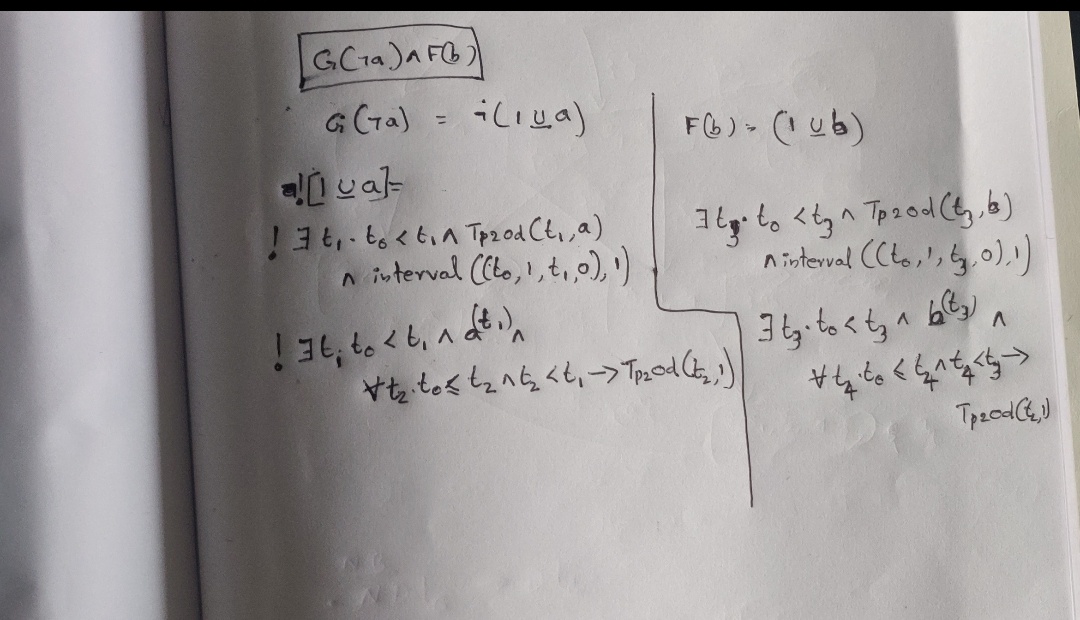 G(¬a) ∧ F(b)
G(¬a) = ¬(1 U a)
![1 U a] =
! ∃ t₁. t₀ < t₁ ∧ Tp2od(t₁, a)
∧ interval ((t₀, 1, t₁, 0), 1)
! ∃ t₁ t₀ < t₁ ∧ a(t₁) ∧
∀ t₂. t₀ ≤ t₂ ∧ t₂ < t₁ → Tp2od(t₂, 1)
F(b) = (1 U b)
∃ t₃. t₀ < t₃ ∧ Tp2od(t₃, b)
∧ interval ((t₀, 1, t₃, 0), 1)
∃ t₃. t₀ < t₃ ∧ b(t₃) ∧
∀ t₄. t₀ ≤ t₄ ∧ t₄ < t₃ →
Tp2od(t₂, 1)